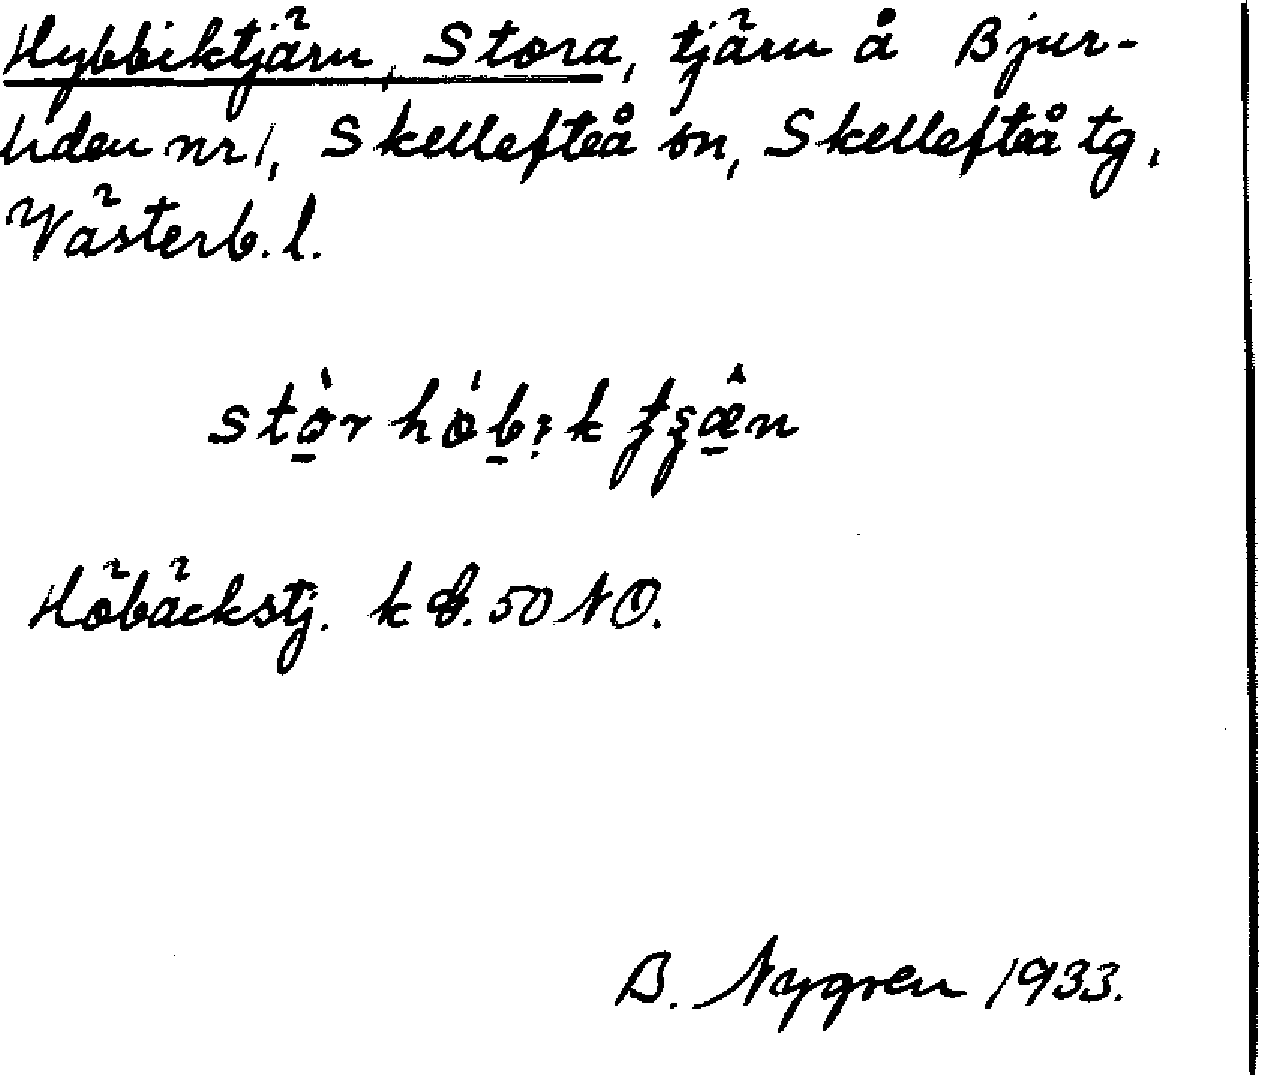 Hybbiktjärn, Stora, tjärn å Bjur-
liden nr 1, Skellefteå sn, Skellefteå tg,
Västerb. l.
Höbäckstj. k bl. 50 NO.
B. Nygren 1933.